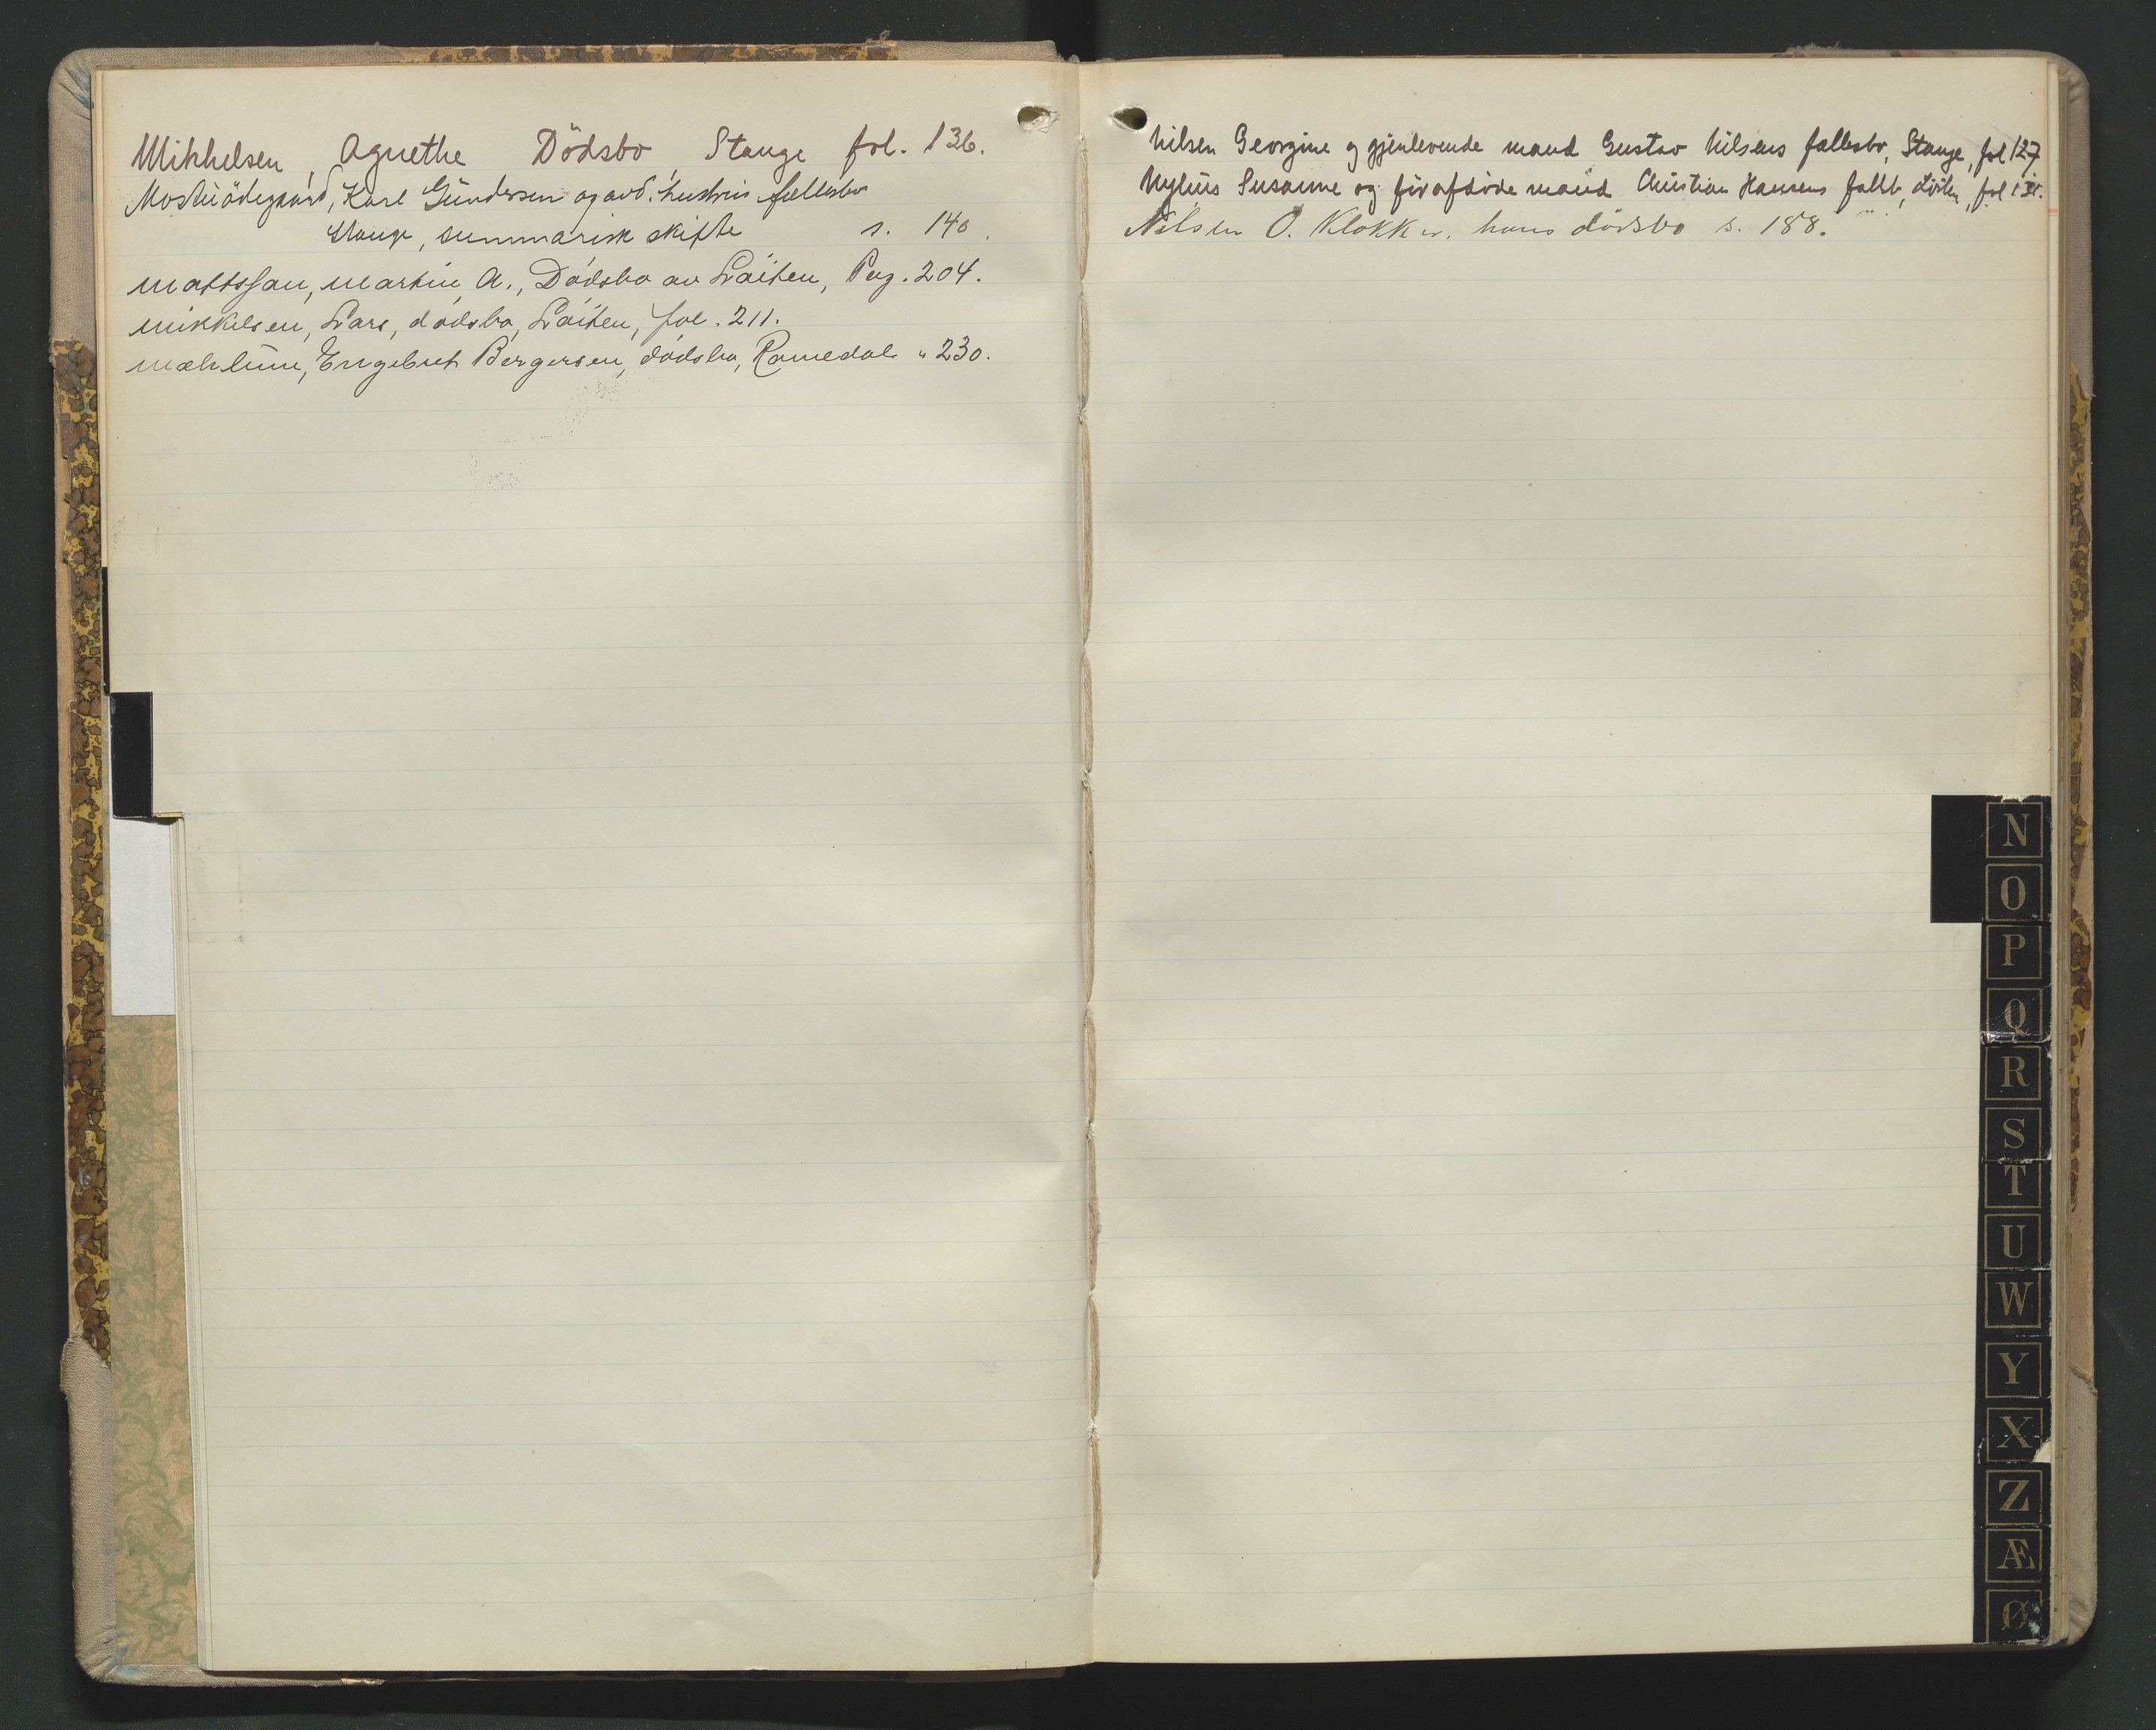 Mikkelsen, Agnethe Dödsbo Stange fol. 136.
Mostuödegaard, Karl Gundersen og avd. hustrus fællesbo
Stange, summarisk skifte s. 140.
Mattsson, Martin A., Dødsbo av Løiten, Pag. 204.
Mikkelsen, Lars, dødsbo, Løiten, fol. 211.
Mæhlum, Engebret Bergersen, dødsbo, Romedal " 230.
Nilsen Georgine og gjenlevende mand Gustav Nilsens fællesbo, Stange, fol 127
Nyhus Susanne og førafdøde mand Christian Hansens fællb, Løiten, fol
Nilsen O. Klokker, hans dødsbo s. 188.
N
O
P
Q
R
S
T
U
W
Y
X
Z
Æ
Ø